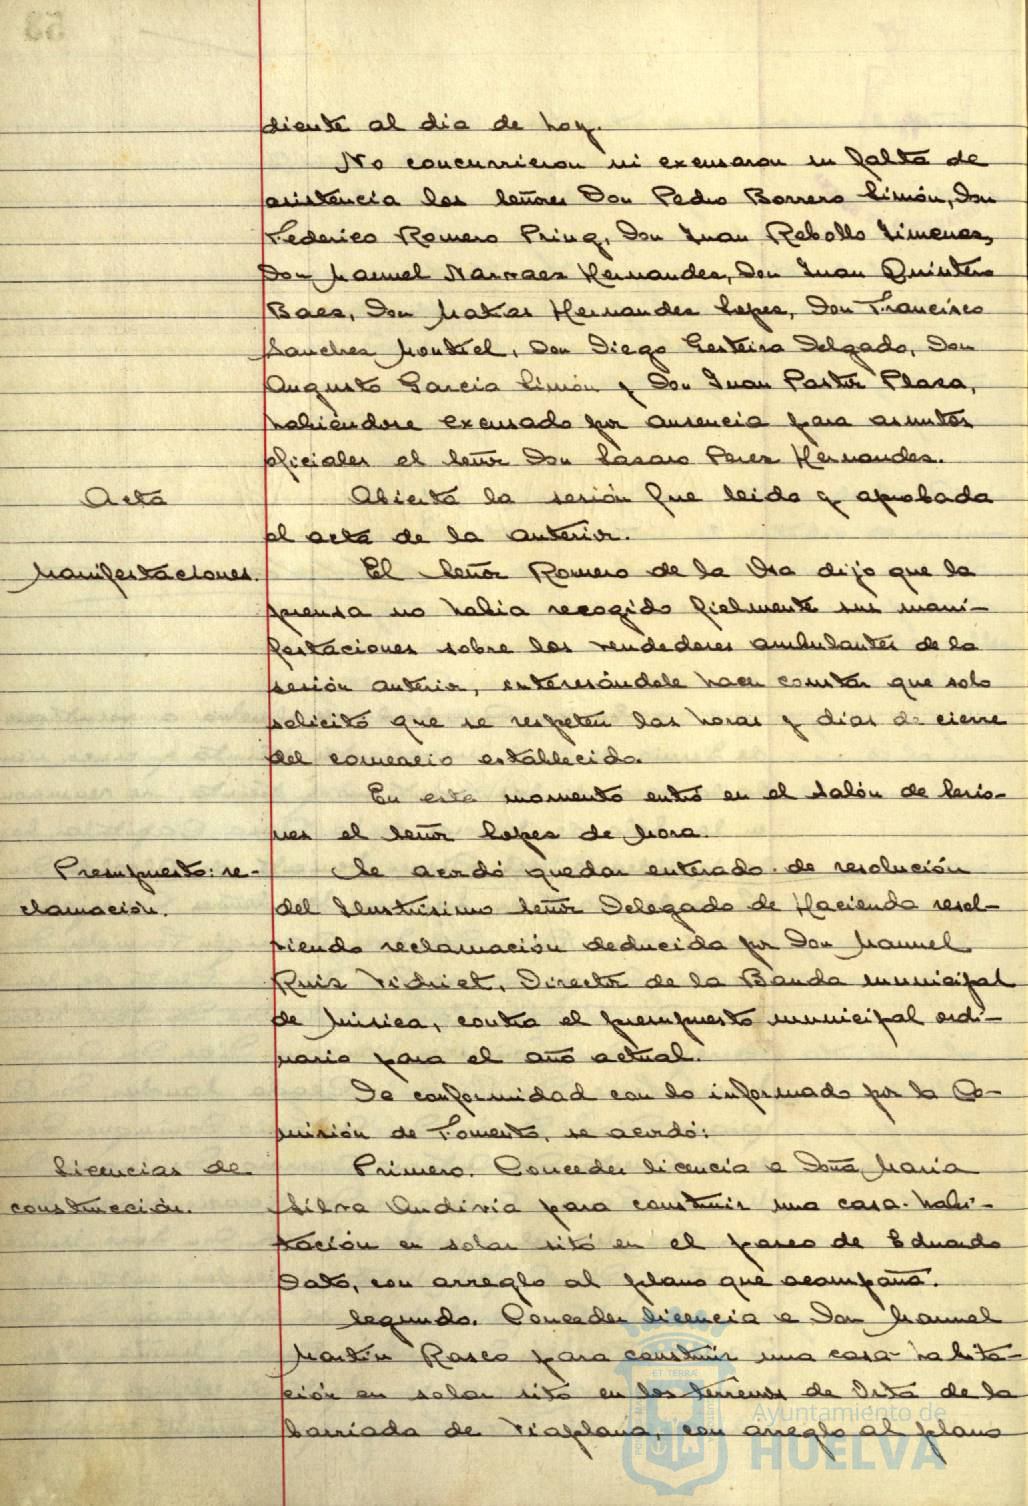 diente al dia de hoy.
No concurrieron ni excusaron su falta de
asistencia los Señores Don Pedro Borrero Limón, Don
Federico Romero Pring, Don Juan Rebollo Jimenez,
Don Manuel Narvaez Hernandez, Don Juan Quintero
Baez, Don Matias Hernandez Lopez, Don Francisco
Sanchez Montiel, Don Diego Gesteira Delgado, Don
Augusto Garcia Limón y Don Juan Pastor Plaza,
habiéndose excusado por ausencia para asuntos
oficiales el Señor Don Lazaro Perez Hernandez.
Acta
Abierta la sesión fue leida y aprobada
el acta de la anterior.
Manifestaciones.
El Señor Romero de la Osa dijo que la
prensa no habia recogido fielmente sus mani-
festaciones sobre los vendedores ambulantes de la
sesión anterior, interesándole hacer constar que solo
solicitó que se respeten las horas y dias de cierre
del comercio establecido.
En este momento entró en el Salón de Sesio-
nes el Señor Lopez de Mora.
Presupuesto: re-
clamación.
Se acordó quedar enterado de resolución
del Ilustrisimo Señor Delegado de Hacienda resol-
viendo reclamación deducida por Don Manuel
Ruiz Vidriet, Director de la Banda municipal
de Música, contra el presupuesto municipal ordi-
nario para el año actual.
De conformidad con lo informado por la Co-
misión de Fomento, se acordó:
Licencias de
construcción.
Primero. Conceder licencia a Doña Maria
Silva Andivia para construir una casa-habi-
tación en solar sito en el paseo de Eduardo
Dato, con arreglo al plano que acompaña.
Segundo. Conceder licencia a Don Manuel
Martin Rasco para construir una casa-habita-
ción en solar sito en los terrenos de Osta de la
barriada de Viaplana, con arreglo al plano
Ayuntamiento de
HUELVA